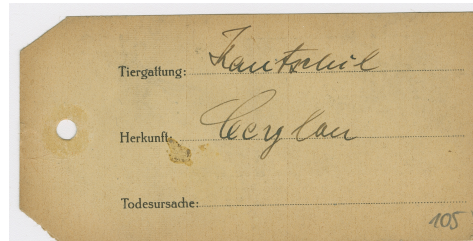 Tiergattung: Kantschil
Herkunft: Ceylan
Todesursache:
105